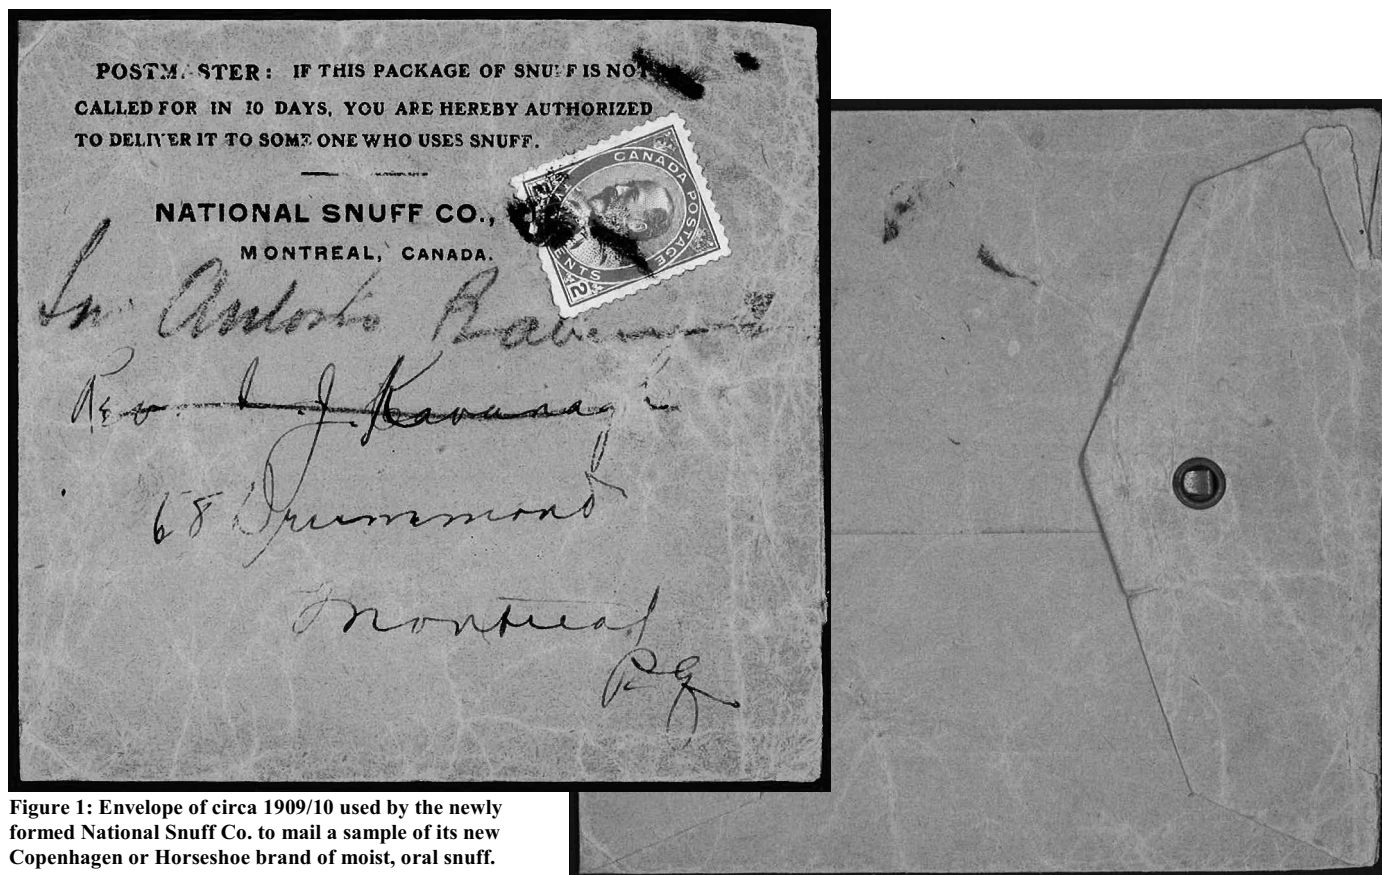 POSTMASTER: IF THIS PACKAGE OF SNUFF IS NOT
CALLED FOR IN 10 DAYS, YOU ARE HEREBY AUTHORIZED
TO DELIVER IT TO SOME ONE WHO USES SNUFF.
NATIONAL SNUFF CO.,
MONTREAL, CANADA.
CANADA POSTAGE
2 CENTS 2
Rev. J. Kavanagh
68 Drummond
Montreal
P.Q.
Figure 1: Envelope of circa 1909/10 used by the newly
formed National Snuff Co. to mail a sample of its new
Copenhagen or Horseshoe brand of moist, oral snuff.